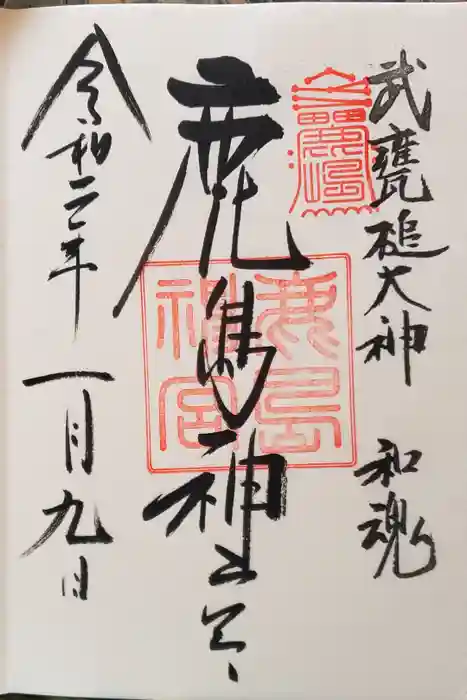 武甕槌大神 和魂
鹿島神宮
令和二年 一月九日
鹿島
神宮